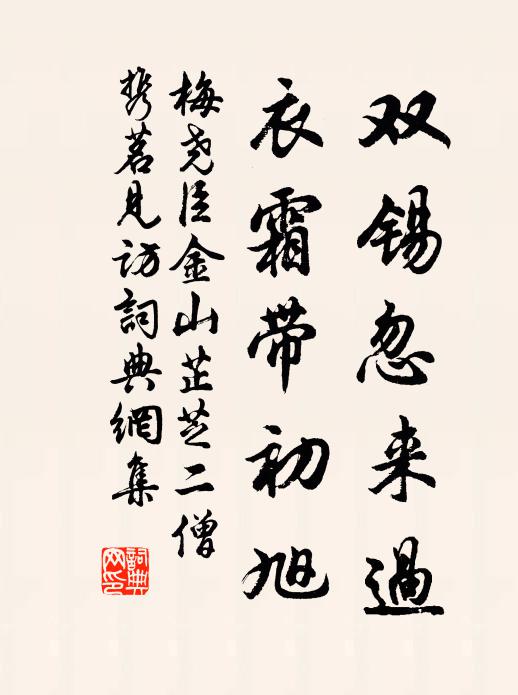 双锡忽来過
衣霜带初旭
梅尧臣金山芷芝二僧
携茗見访詞典網集
詞典网印